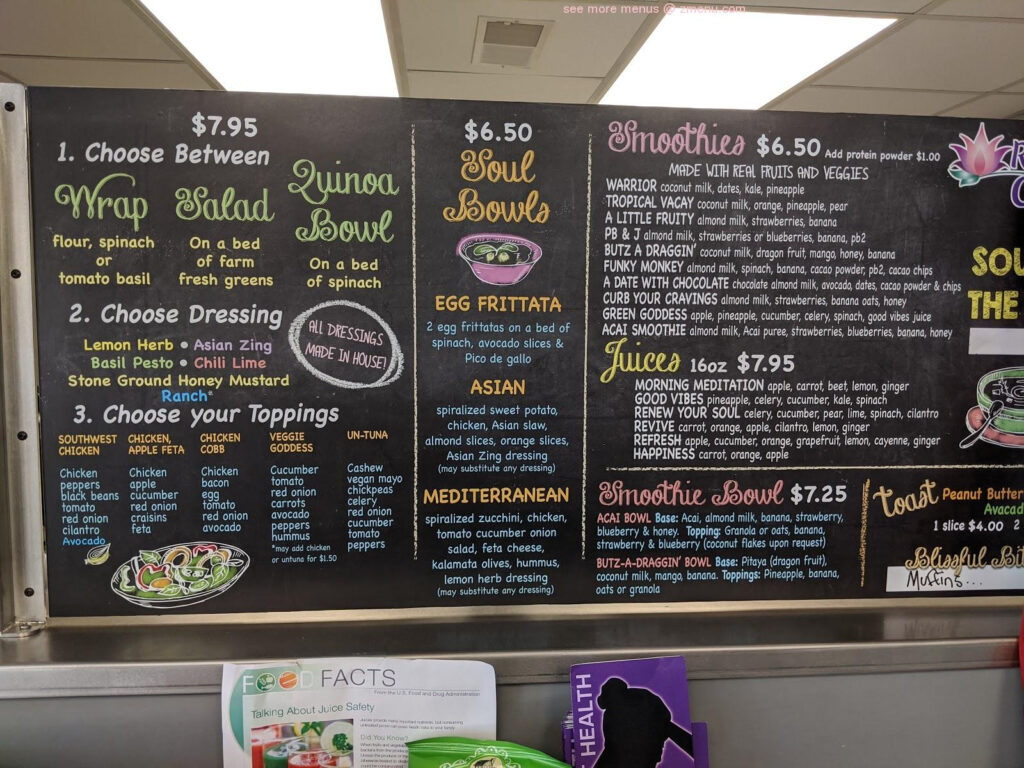 see more menus @ zmenu.com
$7.95
1. Choose Between
Wrap
flour, spinach
or
tomato basil
Salad
On a bed
of farm
fresh greens
Quinoa
Bowl
On a bed
of spinach
2. Choose Dressing
Lemon Herb • Asian Zing
Basil Pesto • Chili Lime
Stone Ground Honey Mustard
Ranch*
ALL DRESSINGS
MADE IN HOUSE!
3. Choose your Toppings
SOUTHWEST
CHICKEN
Chicken
peppers
black beans
tomato
red onion
cilantro
Avocado
CHICKEN,
APPLE FETA
Chicken
apple
cucumber
red onion
craisins
feta
CHICKEN
COBB
Chicken
bacon
egg
tomato
red onion
avocado
VEGGIE
GODDESS
Cucumber
tomato
red onion
carrots
avocado
peppers
hummus
*may add chicken
or untuna for $1.50
UN-TUNA
Cashew
vegan mayo
chickpeas
celery
red onion
cucumber
tomato
peppers
$6.50
Soul
Bowls
EGG FRITTATA
2 egg frittatas on a bed of
spinach, avocado slices &
Pico de gallo
ASIAN
spiralized sweet potato,
chicken, Asian slaw,
almond slices, orange slices,
Asian Zing dressing
(may substitute any dressing)
MEDITERRANEAN
spiralized zucchini, chicken,
tomato cucumber onion
salad, feta cheese,
kalamata olives, hummus,
lemon herb dressing
(may substitute any dressing)
Smoothies $6.50 Add protein powder $1.00
MADE WITH REAL FRUITS AND VEGGIES
WARRIOR coconut milk, dates, kale, pineapple
TROPICAL VACAY coconut milk, orange, pineapple, pear
A LITTLE FRUITY almond milk, strawberries, banana
PB & J almond milk, strawberries or blueberries, banana, pb2
BUTZ A DRAGGIN' coconut milk, dragon fruit, mango, honey, banana
FUNKY MONKEY almond milk, spinach, banana, cacao powder, pb2, cacao chips
A DATE WITH CHOCOLATE chocolate almond milk, avocado, dates, cacao powder & chips
CURB YOUR CRAVINGS almond milk, strawberries, banana oats, honey
GREEN GODDESS apple, pineapple, cucumber, celery, spinach, good vibes juice
ACAI SMOOTHIE almond milk, Acai puree, strawberries, blueberries, banana, honey
Juices 16oz $7.95
MORNING MEDITATION apple, carrot, beet, lemon, ginger
GOOD VIBES pineapple, celery, cucumber, kale, spinach
RENEW YOUR SOUL celery, cucumber, pear, lime, spinach, cilantro
REVIVE carrot, orange, apple, cilantro, lemon, ginger
REFRESH apple, cucumber, orange, grapefruit, lemon, cayenne, ginger
HAPPINESS carrot, orange, apple
Smoothie Bowl $7.25
ACAI BOWL Base: Acai, almond milk, banana, strawberry,
blueberry & honey. Topping: Granola or oats, banana,
strawberry & blueberry (coconut flakes upon request)
BUTZ-A-DRAGGIN' BOWL Base: Pitaya (dragon fruit),
coconut milk, mango, banana. Toppings: Pineapple, banana,
oats or granola
SOU
THE
Toast Peanut Butter
Avacad
1 slice $4.00 2
Blissful Bit
Muffins...
FOOD FACTS
From the U.S. Food and Drug Administration
Talking About Juice Safety
Did You Know?
HEALTH